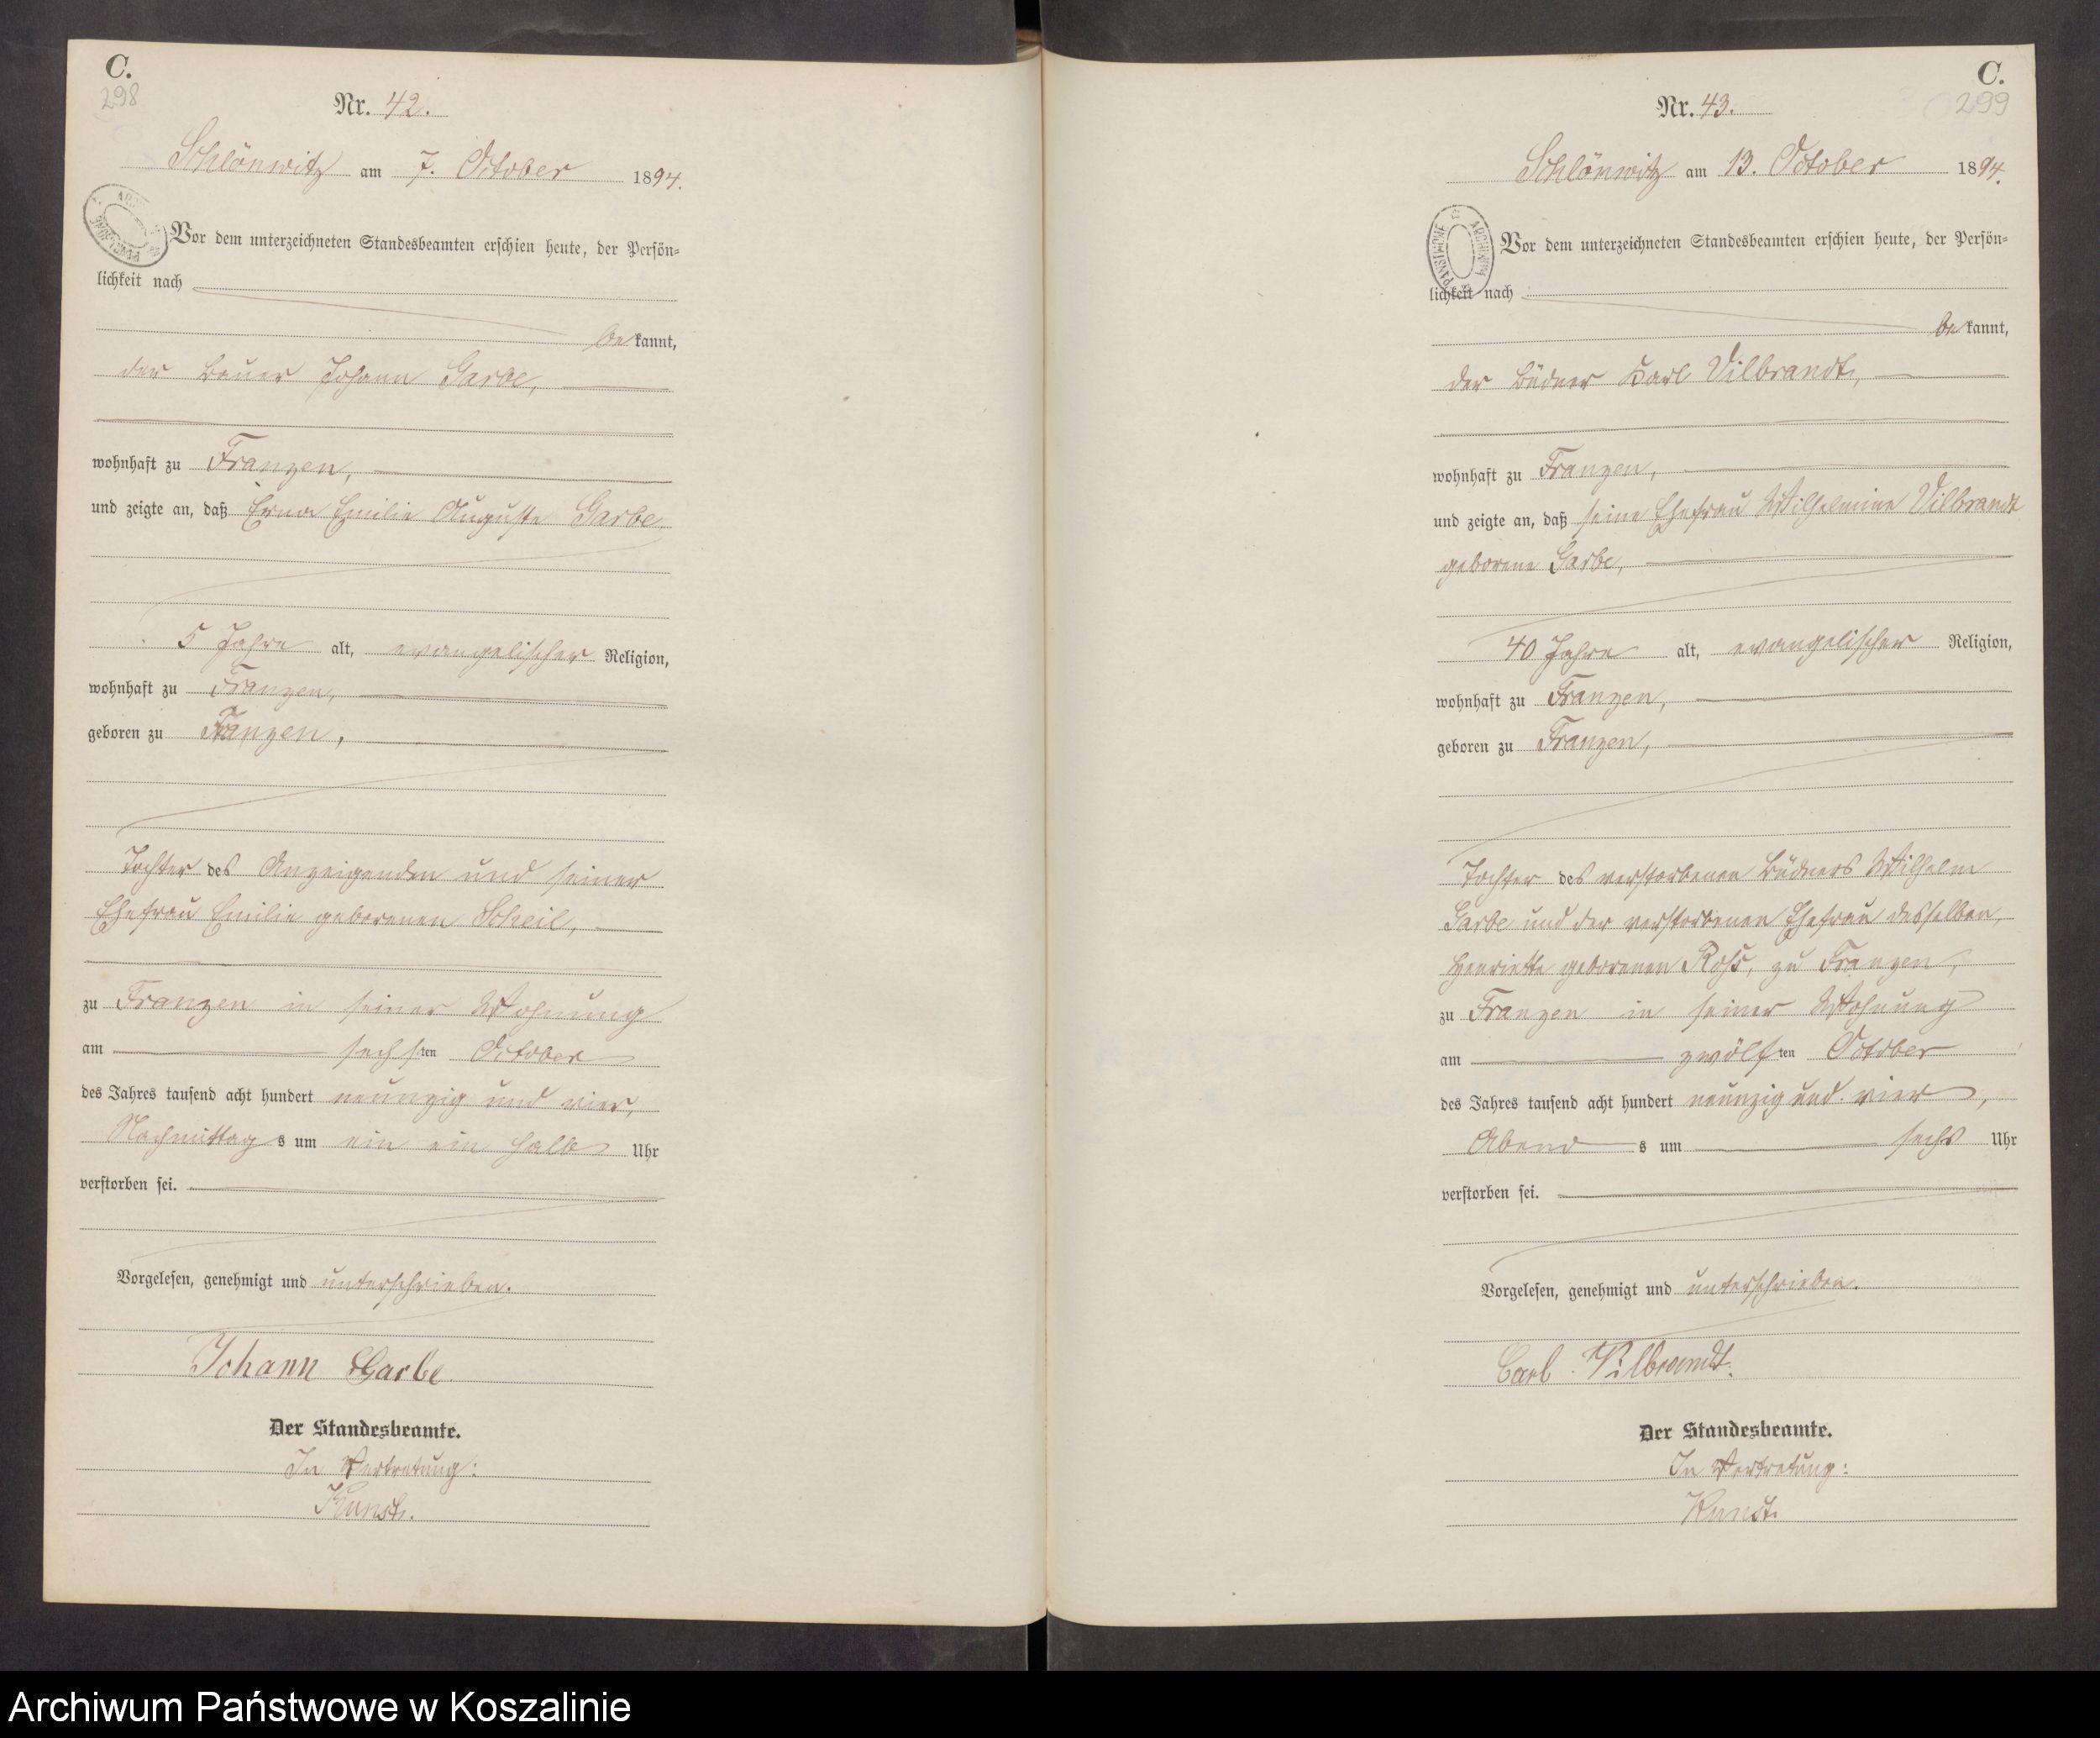 C.
298
Nr. 42.
Schlönwitz am 7. October 1894.
Vor dem unterzeichneten Standesbeamten erschien heute, der Persön-
lichkeit nach
bekannt,
der Bauer Johann Garbe,
wohnhaft zu Franzen,
und zeigte an, daß Erna Emilie Auguste Garbe
5 Jahre alt, evangelischer Religion,
wohnhaft zu Franzen,
geboren zu Franzen,
Tochter des Anzeigenden und seiner
Ehefrau Emilie geborenen Scheil,
zu Franzen in seiner Wohnung
am sechsten October
des Jahres tausend acht hundert neunzig und vier,
Nachmittags um ein ein halb Uhr
verstorben sei.
Vorgelesen, genehmigt und unterschrieben.
Johann Garbe
Der Standesbeamte.
In Vertretung:
Kunst.
C.
299
Nr. 43.
Schlönwitz am 13. October 1894.
Vor dem unterzeichneten Standesbeamten erschien heute, der Persön-
lichkeit nach
bekannt,
der Büdner Karl Vilbrandt,
wohnhaft zu Franzen,
und zeigte an, daß seine Ehefrau Wilhelmine Vilbrandt
geborene Garbe,
40 Jahre alt, evangelischer Religion,
wohnhaft zu Franzen,
geboren zu Franzen,
Tochter des verstorbenen Büdners Wilhelm
Garbe und der verstorbenen Ehefrau desselben,
Henriette geborenen Roß, zu Franzen,
zu Franzen in seiner Wohnung
am zwölften October
des Jahres tausend acht hundert neunzig und vier,
Abends um sechs Uhr
verstorben sei.
Vorgelesen, genehmigt und unterschrieben.
Carl Vilbrandt.
Der Standesbeamte.
In Vertretung:
Kunst.
Archiwum Państwowe w Koszalinie